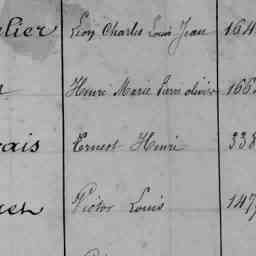 elier Léon Charles Louis Jean 164
Henri Marie Pierre olivier 166
ais Ernest Henri 338
Victor Louis 147